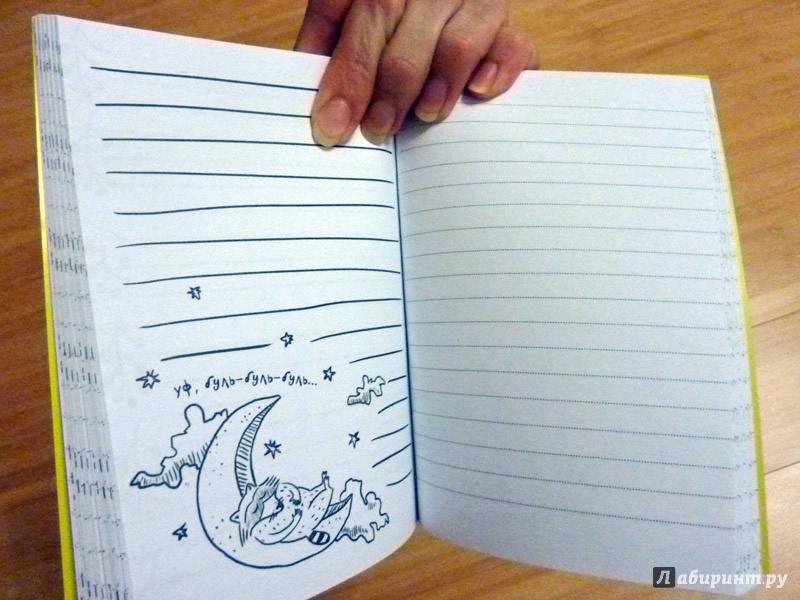 уф, буль-буль-буль...
Лабиринт.ру